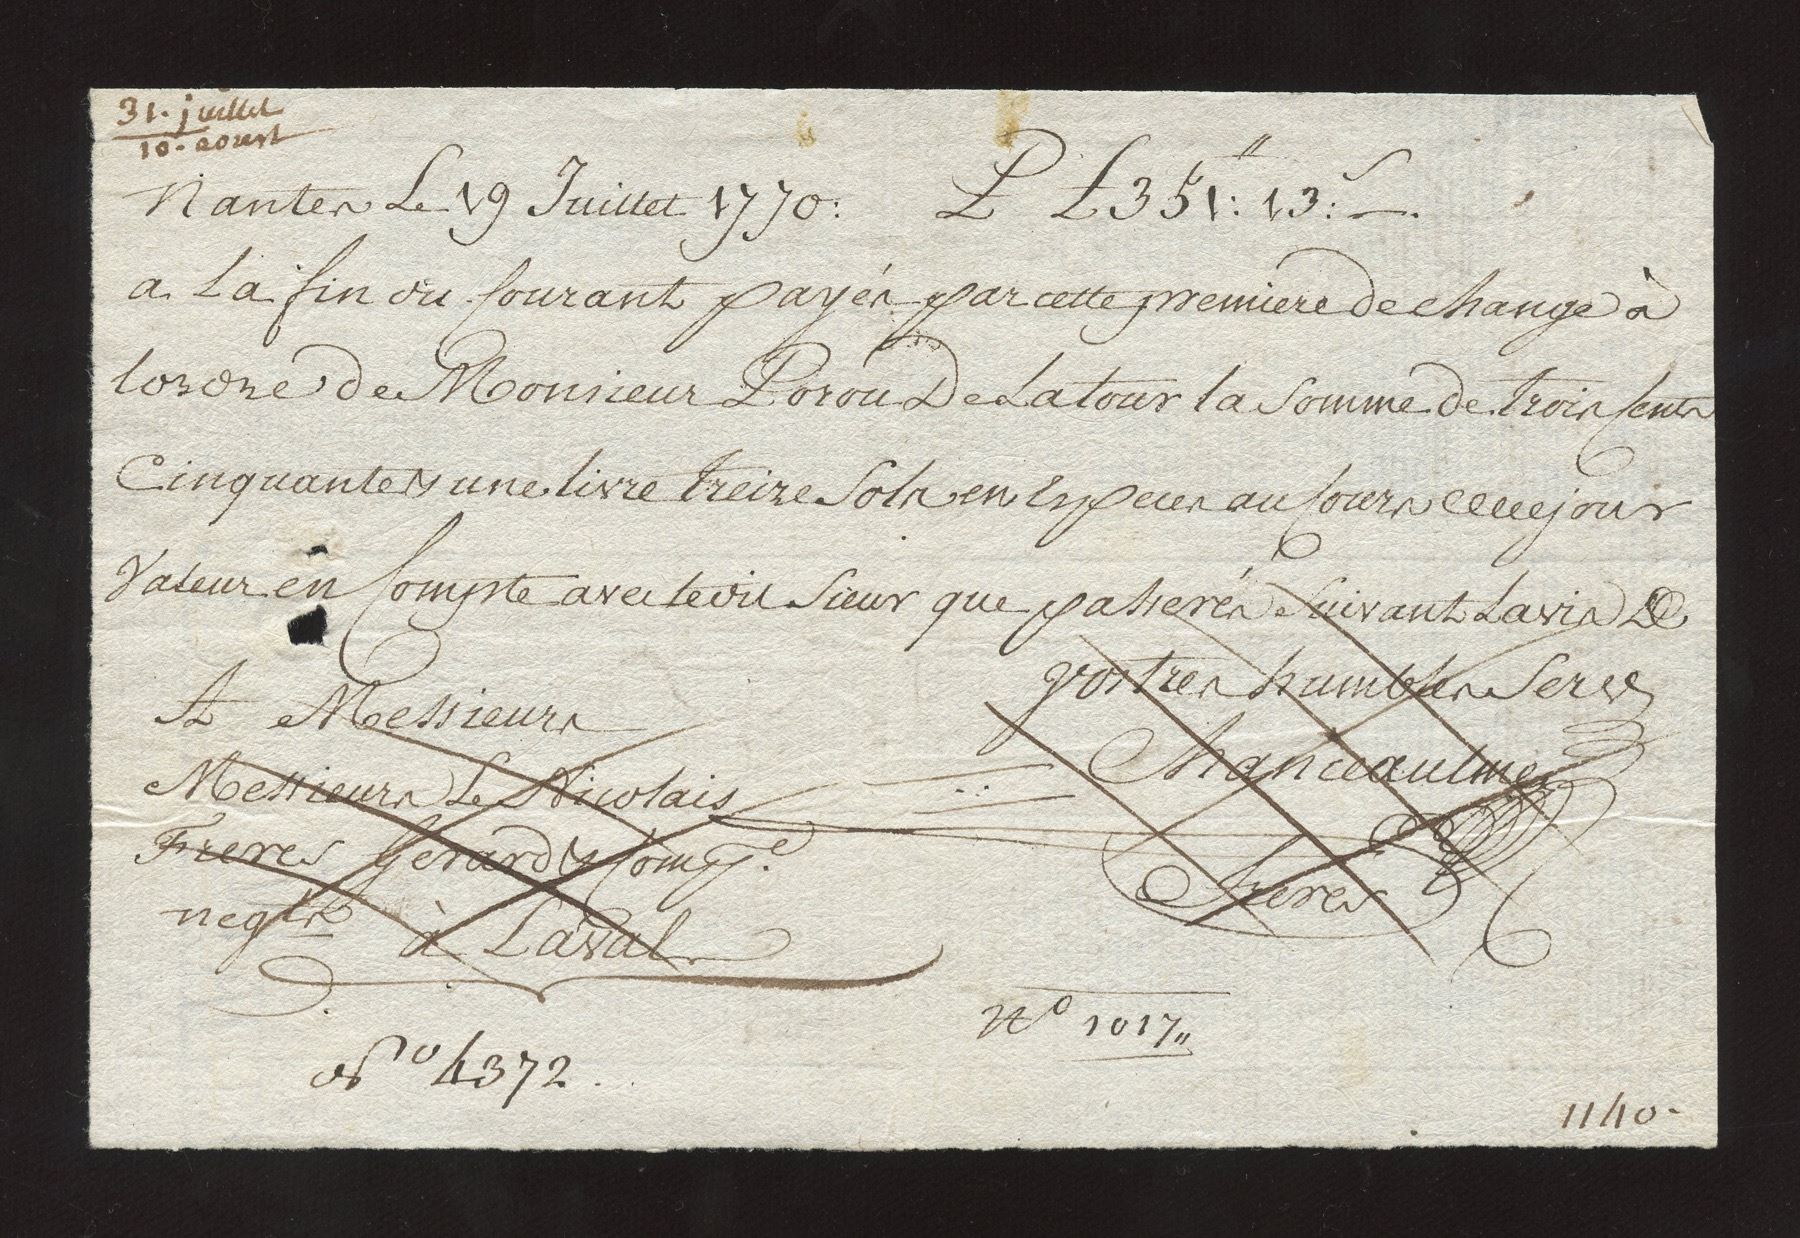 31. juillet
10. aoust
Nantes Le 19 Juillet 1770: P £ 351": 13: s
a La fin du Courant payés par cette premiere de change à
lordre de Monsieur Porou De Latour la Somme de trois Cents
Cinquante & une livre treize Sols en Especes au Cours de ce jour
Valeur en Compte avec ledit Sieur que passerés Suivant Lavis De
A Messieurs vostres humbles Servs
Messieurs Le Nicolais Chanceaulme
Freres Gerard & Compe. Freres
negts à Laval
No 1017"
No 4372.
1140.